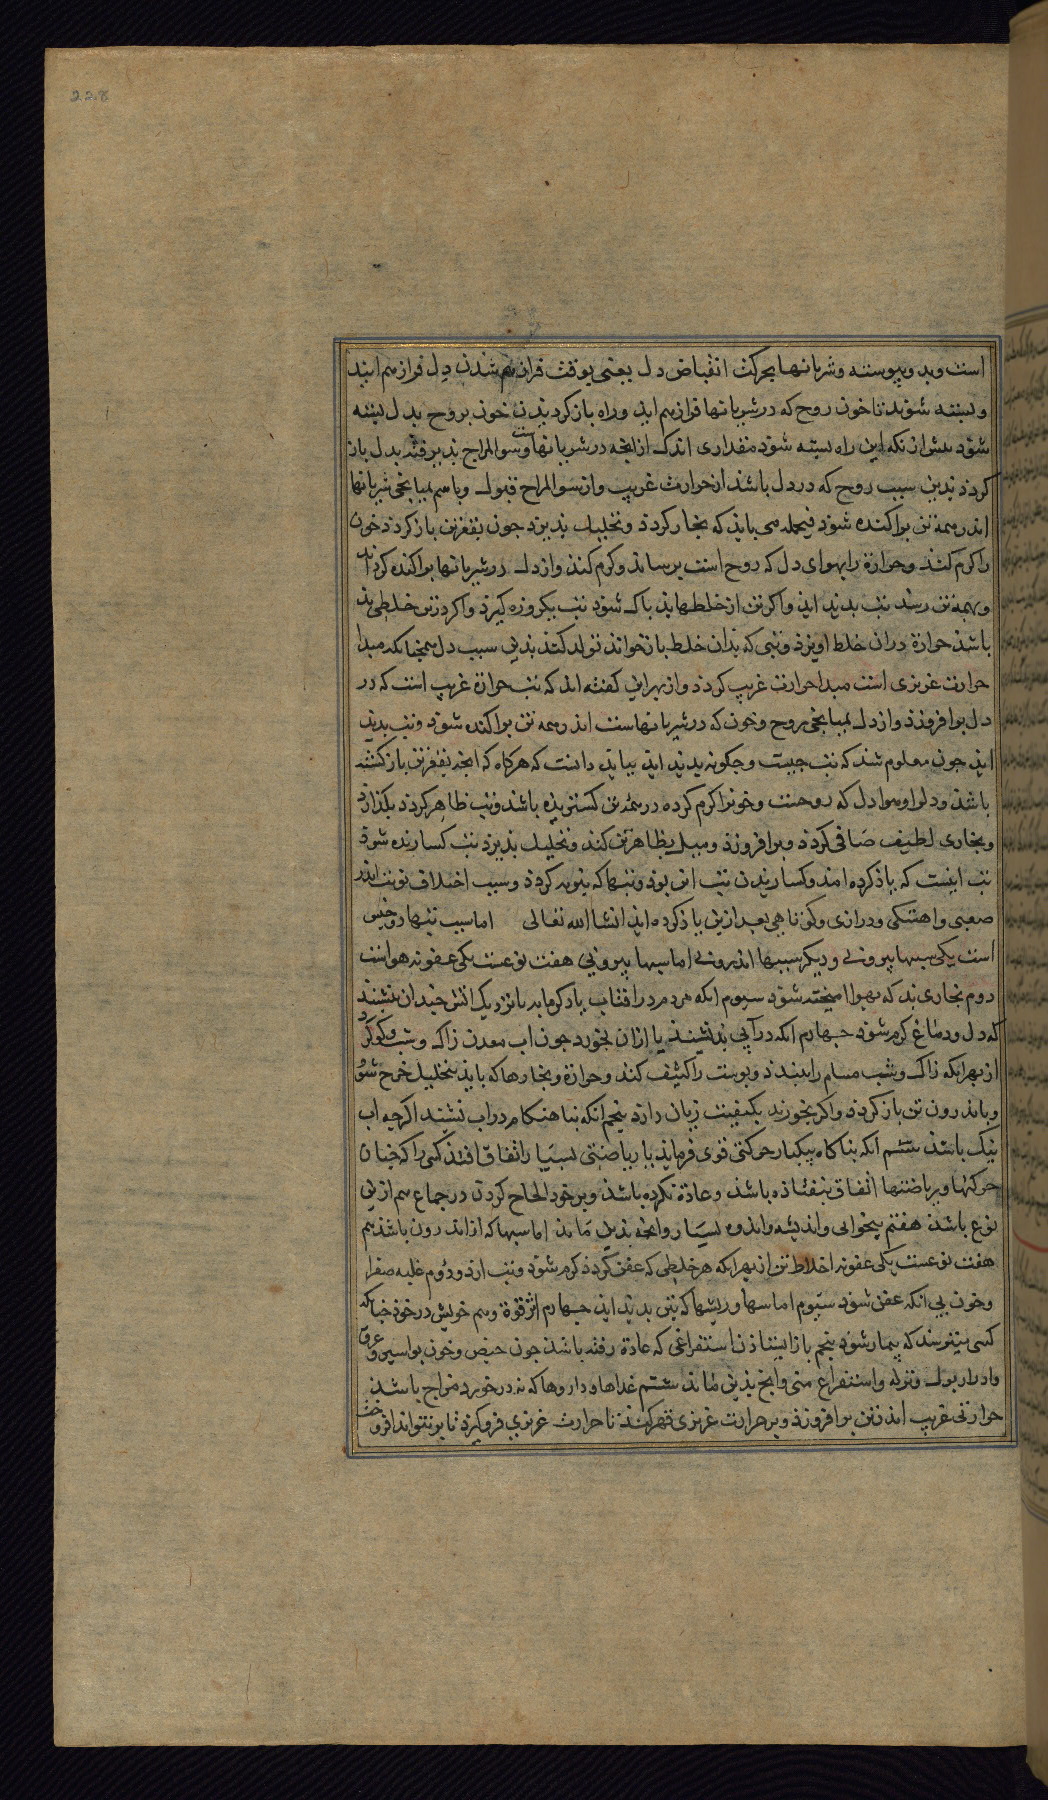 228
است وبد و پیوسته و شریانها بحرکت انقباض دل یعنی بوقت فراز هم شدن دل فراز هم ایند
و بسته شوند تا خون روح که در شریانها فراز هم اید و راه باز کردیدن خون بروح بدل بسته
شوذ بیش از نکه این راه بسته شوذ مقداری اندک از انجه در شریانهاست و سوالمزاج بذیرفته بدل باز
کردذ بدین سبب روح که در دل باشذ از حرارت غریب و از سوالمزاج قبول و باسم بمیانجی شریانها
اندر همه تن براکنده شوذ فیجمله می بایذ که بخار کردذ و تحلیل بذیرذ جون بقعرتن باز کردذ خون
را کرم کند و حرارة را بهوای دل که روح است برساند و کرم کند و از دل در شریانها براکنده کرداند
و بهمه تن رسد تب بدید اید و اکر تن از خلطهاء بذ باک شوذ تب یکروزه کیرذ و اکر در تن خلطی بذ
باشذ حرارة دران خلط اویزذ و تبی که بذان خلط باز خواند تولد کند بذین سبب دل همجنانکه مبدا
حرارت غریزی است مبدا حرارت غریب کردد و از بهر این کفته اند که تب حرارة غریب است که در
دل برافروزذ و از دل بمیانجی روح و خون که در شریانهاست اندر همه تن براکنده شوذ و تب بدید
اید جون معلوم شد که تب جیست و جکونه بدید اید بباید دانست که هر کاه که ابخره بقعرتن بازکشته
باشذ و دل و هوا دل که روحست و خونرا کرم کرده در همه تن کستریذه باشذ و تب ظاهر کردد بکذارد
و بخاری لطیف صافی کردد و برافروزذ و میل بظاهر تن کند و تحلیل بذیرذ تب کسارنده شوذ
تب اینست که یاذ کرده امد و کساریدن تب این بوذ و تبها که بنوبه کردد و سبب اختلاف نوبت اندر
صعبی و اهستکی و درازی و کوتاهی بعد ازین یاذ کرده اید انشا الله تعالی اما سبب تبها دو جنس
است یکی سببها بیرونی و دیکر سببها اندرونی اما سببها بیرونی هفت نوعست یکی عفونه هواست
دوم بخاری بذ که بهوا امیخته شوذ سیوم انکه مردم در افتاب یا در کرمابه یا نزدیک اتش جندان بنشیند
که دل و دماغ کرم شوذ جهارم انکه در آبی بنشیند یا ازان بخورد جون اب معدن زاک و شب و کوکرد
از بهر انکه زاک و شب مسام را ببندد و بوست را کثیف کند و حرارة و بخارها که باید بتحلیل خرج شوذ
و باندرون تن باز کردد و اکر بخورند بکیفیت زیان دارد بنجم انکه بناهنکام در اب نشیند اکرجه اب
نیک باشذ ششم انکه بناکاه بیکبار حرکتی قوی فرماید یا ریاضتی بسیار اتفاق افتد کسی را که جنان
حرکتها و ریاضتها اتفاق نیفتاذه باشذ و عادة نکرده باشذ و بر خود الحاح کردن در جماع هم ازین
نوع باشذ هفتم بیخوابی و اندیشه و اندوه بسیار و انجه بدین ماند اما سببها که از اندرون باشذ هم
هفت نوعست یکی عفونه اخلاط تن از بهر انکه هر خلطی که عفن کردذ کرم شوذ و تب ارد و دوم غلبه صفرا
و خون بی انکه عفن شوذ سیوم اماسها و ریشها که بتن بدید اید جهارم اثر قوة وهم خویش در خود جنانکه
کسی بترسد که بیمار شوذ بنجم باز ایستاذن استفراغی که عادة رفته باشذ جون حیض و خون بواسیر و عرق
و ادرار بول و توله و استفراغ منی و انج بدین ماند ششم غذاها و داروها که نه در خورد مزاج باشذ
حرارتی غریب اندر تن برافروزذ و بر حرارت غریزی قهر کند تا حرارت غریزی فرو کیرذ تا بر نتواند افروخت